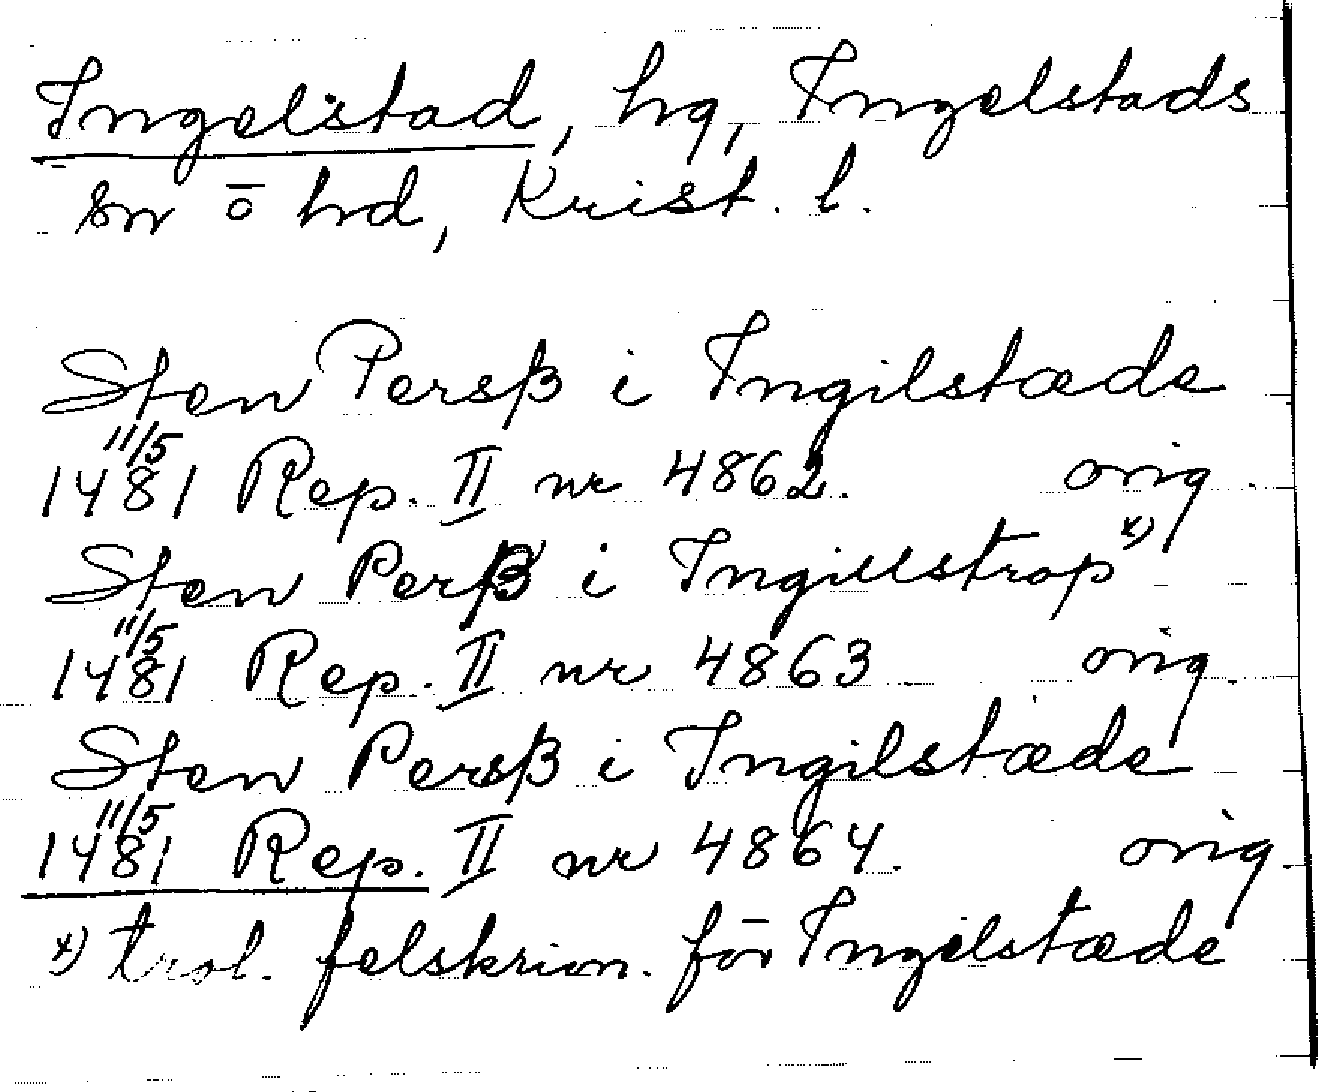 Ingelstad, hg, Ingelstads
sn ö hd, Krist. l.
Sten Persß i Ingilstæde
11/5
1481 Rep. II nr 4862. orig.
Sten Perß i Ingillstrop x)
11/5
1481 Rep. II nr 4863 orig.
Sten Persß i Ingilstæde
11/5
1481 Rep. II nr 4864. orig.
x) trol. felskrivn. för Ingelstæde